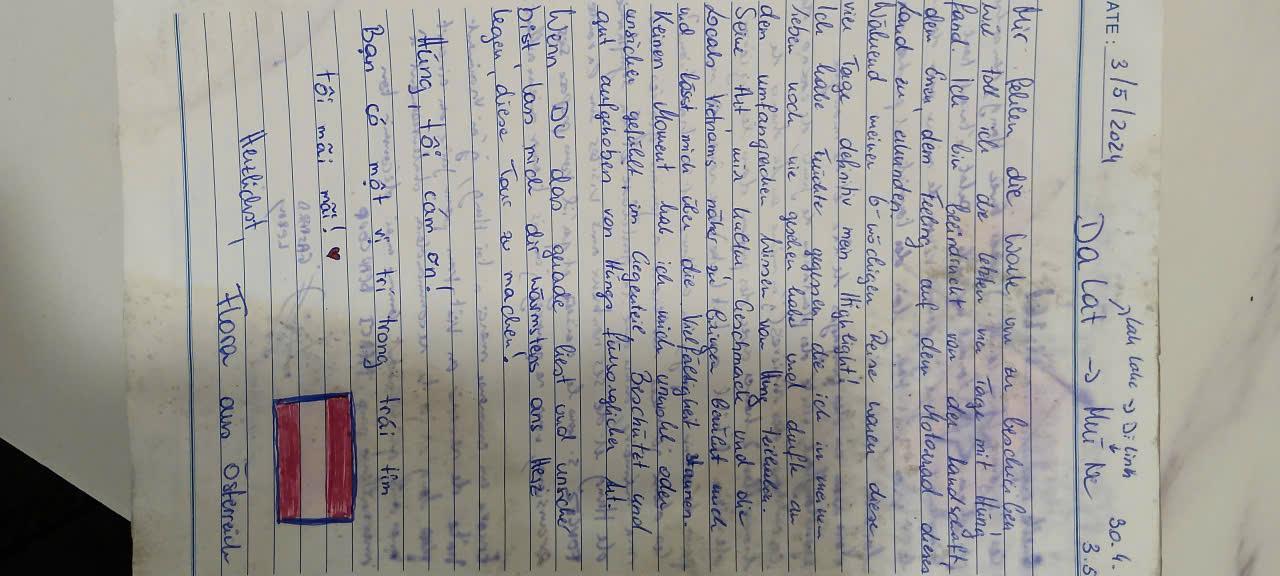 DATE: 3/5/2024
Lak Lake → Di Linh 30.4.
Dalat → Mui Ne 3.5
Mir fehlen die Worte um zu beschreiben
wie toll ich die letzten vier Tage mit Hung
fand. Ich bin beeindruckt von der Landschaft,
dem Essen, dem Feeling auf dem Motorrad dieses
Land zu erkunden.
Während meiner 6-wöchigen Reise waren diese
vier Tage definitiv mein Highlight!
Ich habe Früchte gegessen die ich in meinem
Leben noch nie gesehen habe und durfte an
dem umfangreichen Wissen von Hung teilhaben.
Seine Art mir Kultur, Geschmack und die
Locals Vietnams näher zu bringen berührt mich
und lässt mich über die Vielfältigkeit staunen.
Keinen Moment hab ich mich unwohl oder
unsicher gefühlt im Gegenteil, Beschützt und
gut aufgehoben von Hungs fürsorglicher Art.
Wenn DU das gerade liest und unsicher
bist lass mich dir wärmstens ans Herz
legen, diese Tour zu machen!
Hùng, tôi cảm ơn!
Bạn có một vị trí trong trái tim
tôi mãi mãi! ♥
Herzlichst,
Flora aus Österreich